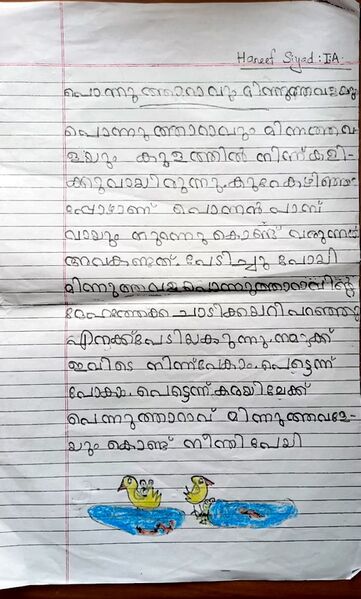 Haneef Siyad : II A
പൊന്നുത്താറാവും മിന്നുത്തവളയും
പൊന്നുത്താറാവും മിന്നുത്തവ
ളയും കുളത്തിൽ നിന്ന് കളി
ക്കുവായിരുന്നു. കുറേകഴിഞ്ഞ
പ്പോഴാണ് പൊന്നൻ പാമ്പ്
വായും തുറന്നു കൊണ്ട് വരുന്നത്
അവകണ്ടത്. പേടിച്ചു പോയി
മിന്നുത്തവള പൊന്നുത്താറാവിന്റെ
ദേഹത്തേക്ക് ചാടിക്കയറി പറഞ്ഞു
എനക്ക് പേടിയാകുന്നു. നമുക്ക്
ഇവിടെ നിന്ന് പോകാം. പെട്ടെന്ന്
പോകാം. പെട്ടെന്ന് കരയിലേക്ക്
പെന്നുത്താറാവ് മിന്നുത്തവള
യും കൊണ്ട് നീന്തി പോയി